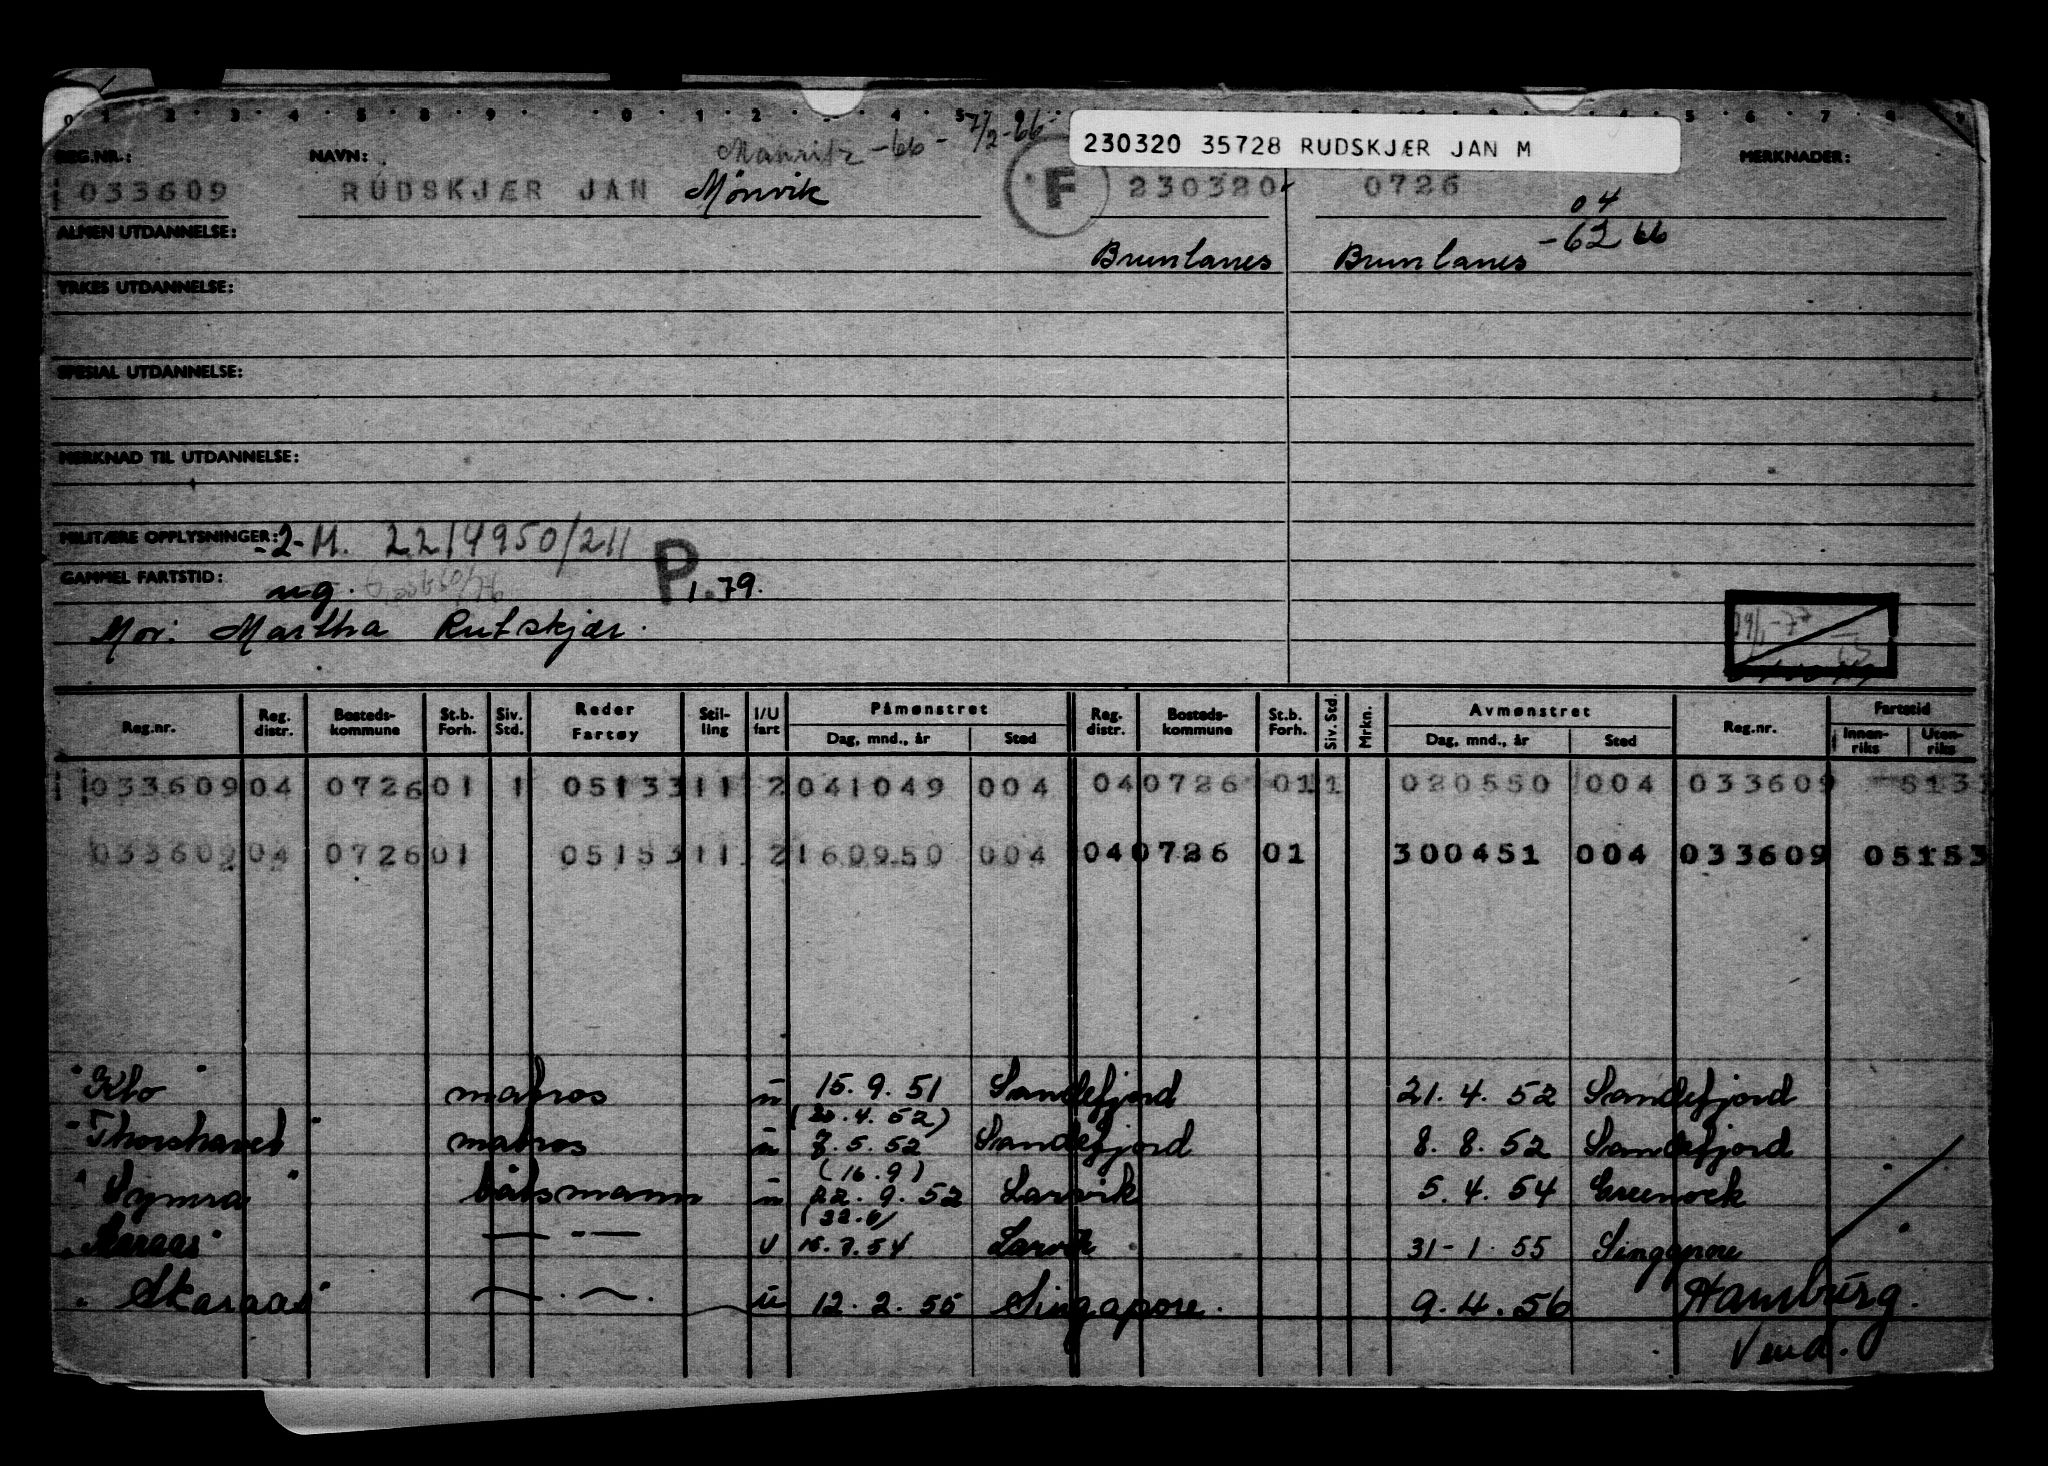 230320 35728 RUDSKJÆR JAN M
REG.NR.: NAVN: -66- 7/2-66 MERKNADER:
033609 RUDSKJÆR JAN Mønvik F 230320 0726
04
ALMEN UTDANNELSE: Brunlanes Brunlanes -62 66
YRKES UTDANNELSE:
SPESIAL UTDANNELSE:
MERKNAD TIL UTDANNELSE:
MILITÆRE OPPLYSNINGER: -2-M. 2214950/211
GAMMEL FARTSTID: ug. P 1.79.
Mor: Martha Rutskjær.
Reg.nr. Reg. distr. Bosteds-kommune St.b. Forh. Siv. Std. Reder Fartøy Stil-ling I/U fart Påmønstret Dag, mnd., år Sted Reg. distr. Bosteds-kommune St.b. Forh. Siv. Std. Mrkn. Avmønstret Dag, mnd., år Sted Reg.nr. Fartstid Innen-riks Uten-riks
033609 04 0726 01 1 05133 11 2 041049 004 04 0726 01 1 020550 004 033609 5133
033609 04 0726 01 05153 11 2 160950 004 04 0726 01 300451 004 033609 05153
"Klo" matros u 15. 9. 51 Sandefjord 21. 4. 52 Sandefjord
(30.4.52)
"Thorshavet" matros u 7. 5. 52 Sandefjord 8. 8. 52 Sandefjord
(16.9)
"Vymra" båtsmann u 22. 9. 52 Larvik 5. 4. 54 Greenock
(22.6)
— " — u 15. 7. 54 Larvik 31-1. 55 Singapore
"Skaraas" u 12. 2. 55 Singapore. 9. 4. 56 Hamburg.
Vend.